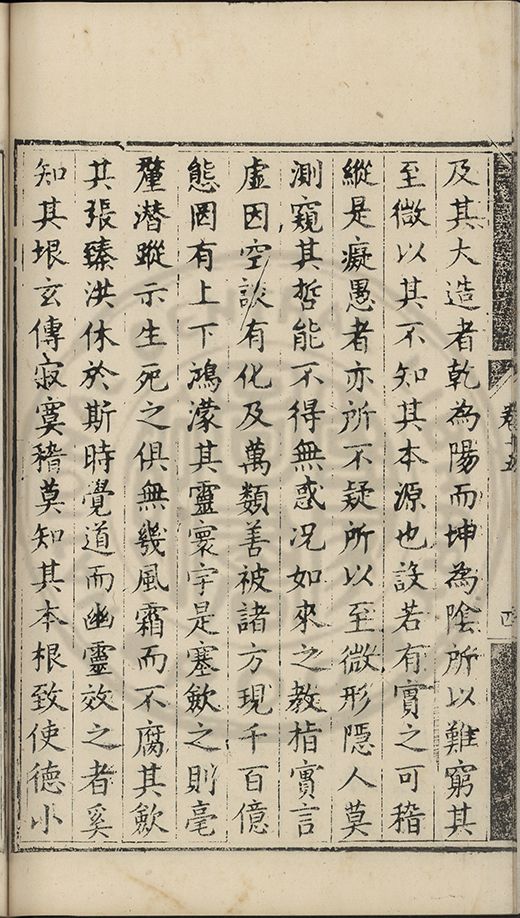 及其大造者乾為陽而坤為陰所以難窮其
至微以其不知其本源也設若有實之可稽
縱是癡愚者亦所不疑所以至微形隱人莫
測窺其哲能不得無惑况如來之教指實言
虛因空談有化及萬類善被諸方現千百億
態罔有上下鴻濛其靈寰宇是塞歛之則毫
釐潜蹤示生死之俱無幾風霜而不腐其歛
其張臻洪休於斯時覺道而幽靈效之者奚
知其垠玄傳寂寞稽莫知其本根致使德小
卷十五
四